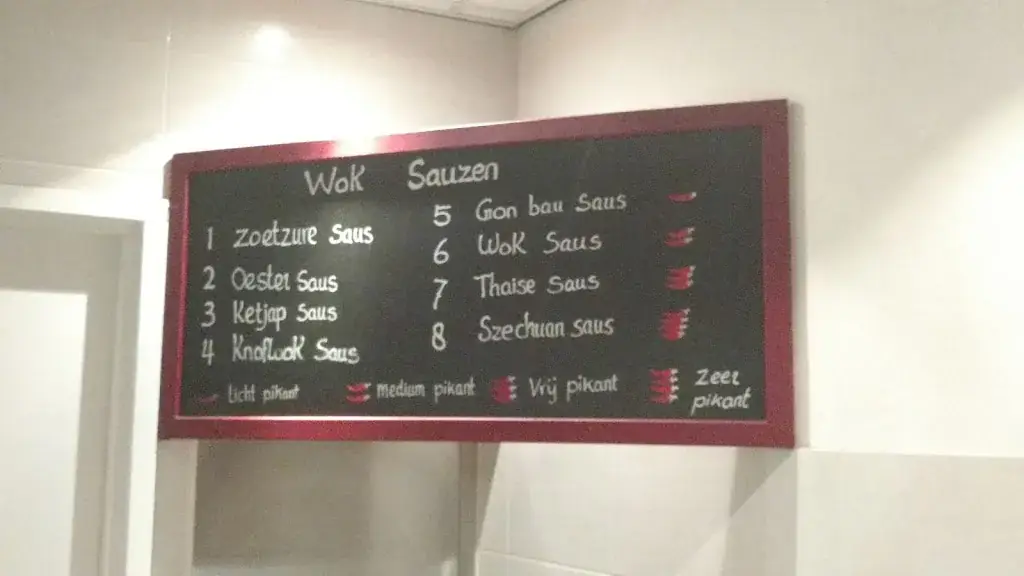 Wok Sauzen
1 Zoetzure Saus
2 Oester Saus
3 Ketjap Saus
4 Knoflook Saus
5 Gon bau Saus
6 Wok Saus
7 Thaise Saus
8 Szechuan saus
Licht pikant
medium pikant
Vrij pikant
Zeer
pikant